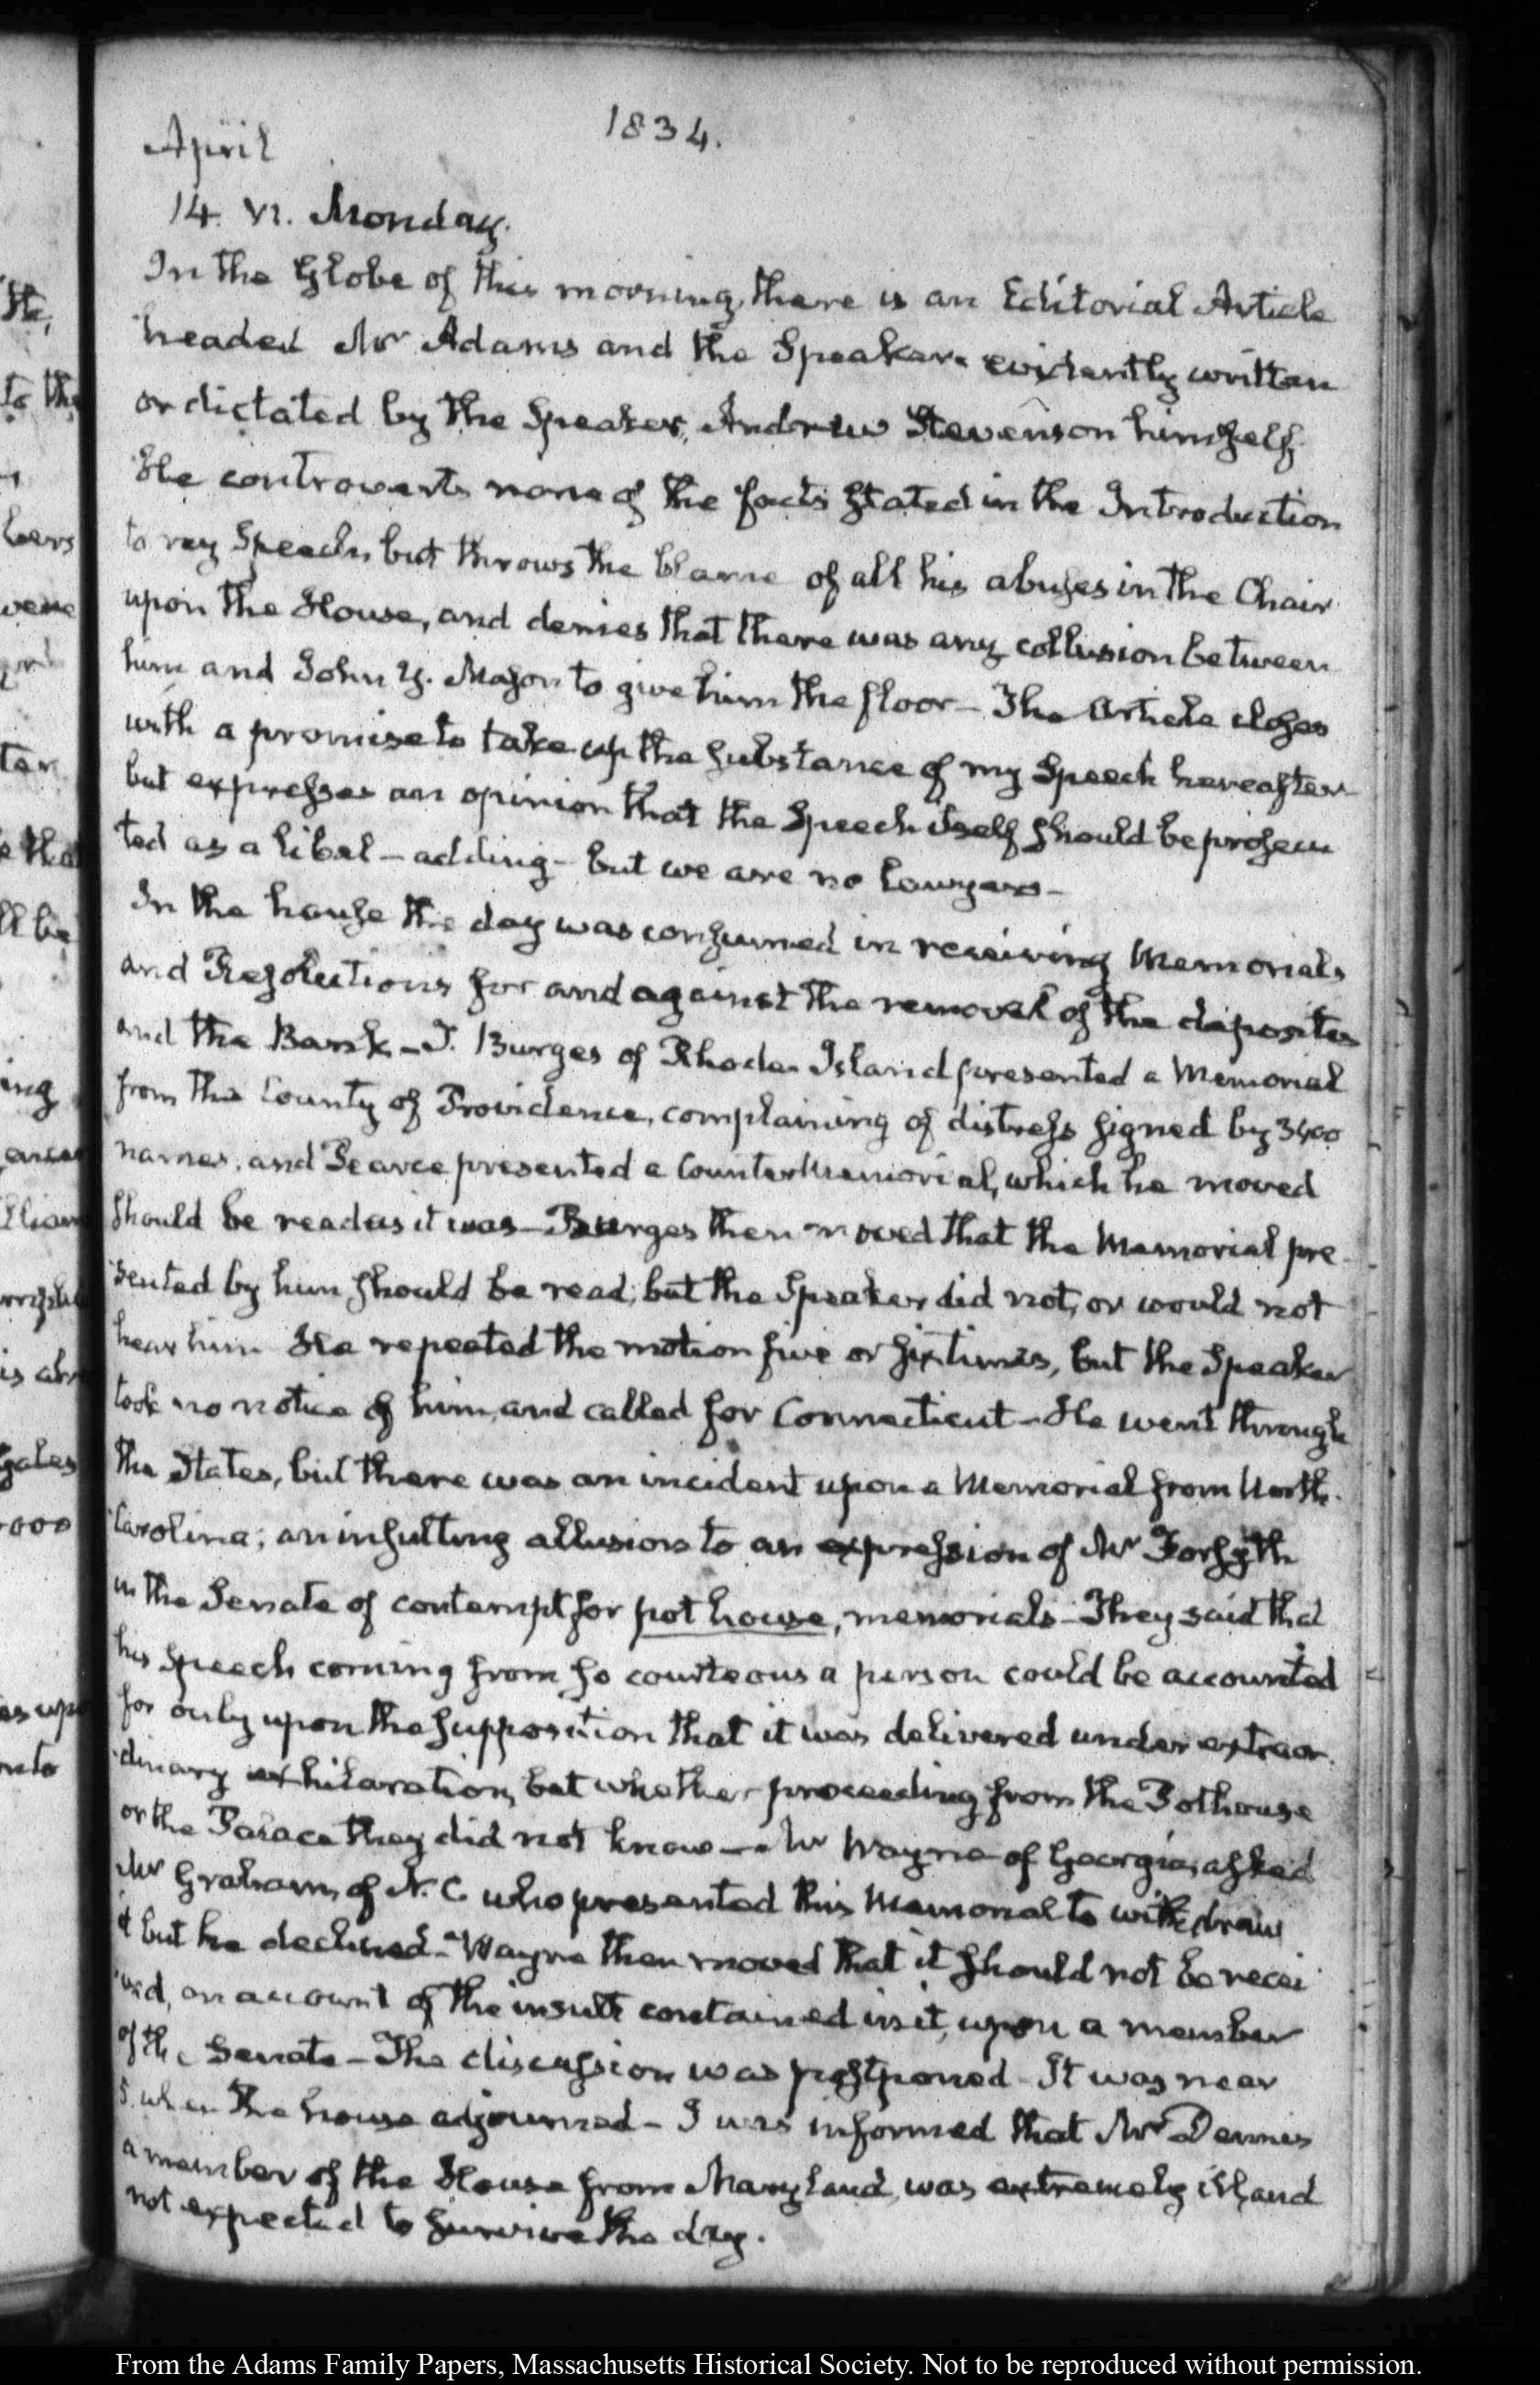 April
1834.
14. VI. Monday.
In the Globe of this morning, there is an Editorial Article
headed Mr Adams and the Speaker. evidently written
or dictated by the Speaker, Andrew Stevenson himself.
He controverts none of the facts stated in the Introduction
to my Speech, but throws the blame of all his abuses in the Chair
upon the House, and denies that there was any collusion between
him and John Y. Mason to give him the floor — The Article closes
with a promise to take up the substance of my Speech hereafter
but expresses an opinion that the Speech itself should be prosecu
ted as a libel — adding — but we are no lawyers —
In the house the day was consumed in receiving Memorials
and Resolutions for and against the removal of the deposites
and the Bank — T. Burges of Rhode Island presented a Memorial
from the County of Providence, complaining of distress signed by 3400
names, and Pearce presented a Counter Memorial, which he moved
should be read as it was — Burges then moved that the Memorial pre
sented by him should be read; but the Speaker did not, or would not
hear him He repeated the motion five or six times, but the Speaker
took no notice of him, and called for Connecticut — He went through
the States, but there was an incident upon a Memorial from North
Carolina; an insulting allusion to an expression of Mr Forsyth
in the Senate of contempt for pot house, memorials — They said that
his Speech coming from so courteous a person could be accounted
for only upon the supposition that it was delivered under extraor
dinary exhilaration, but whether proceeding from the Pothouse
or the Palace they did not know — Mr Wayne of Georgia, asked
Mr Graham, of N. C. who presented this Memorial to withdraw
it but he declined — Wayne then moved that it should not be recei
ved, on account of the insult contained in it, upon a member
of the Senate — The discussion was postponed — It was near
5. when the house adjourned — I was informed that Mr Dennis
a member of the House from Maryland, was extremely ill, and
not expected to survive the day.
From the Adams Family Papers, Massachusetts Historical Society. Not to be reproduced without permission.